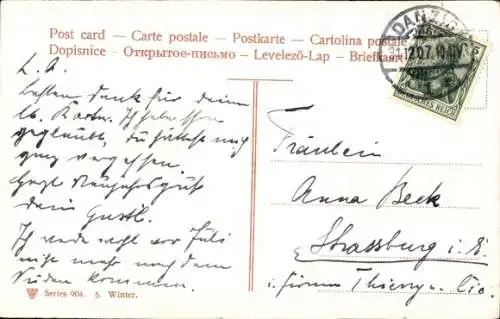 Post card — Carte postale — Postkarte — Cartolina postale
Dopisnice - Открытое-письмо - Levelező-Lap - Briefkaart
DANZIG
31.12.07.10-11V
DEUTSCHES REICH
5
L. A.
Besten Dank für deine
lb. Karte. Ich habe schon
geglaubt, du hättest mich
ganz vergessen.
Herzl. Neujahrsgruß
dein Gustl.
Ich werde wohl vor Juli
nicht mehr nach dem
Süden kommen.
Fräulein
Anna Beck
Strassburg i. E.
i. Firma Thierry u. Cie.
Series 904. 5. Winter.